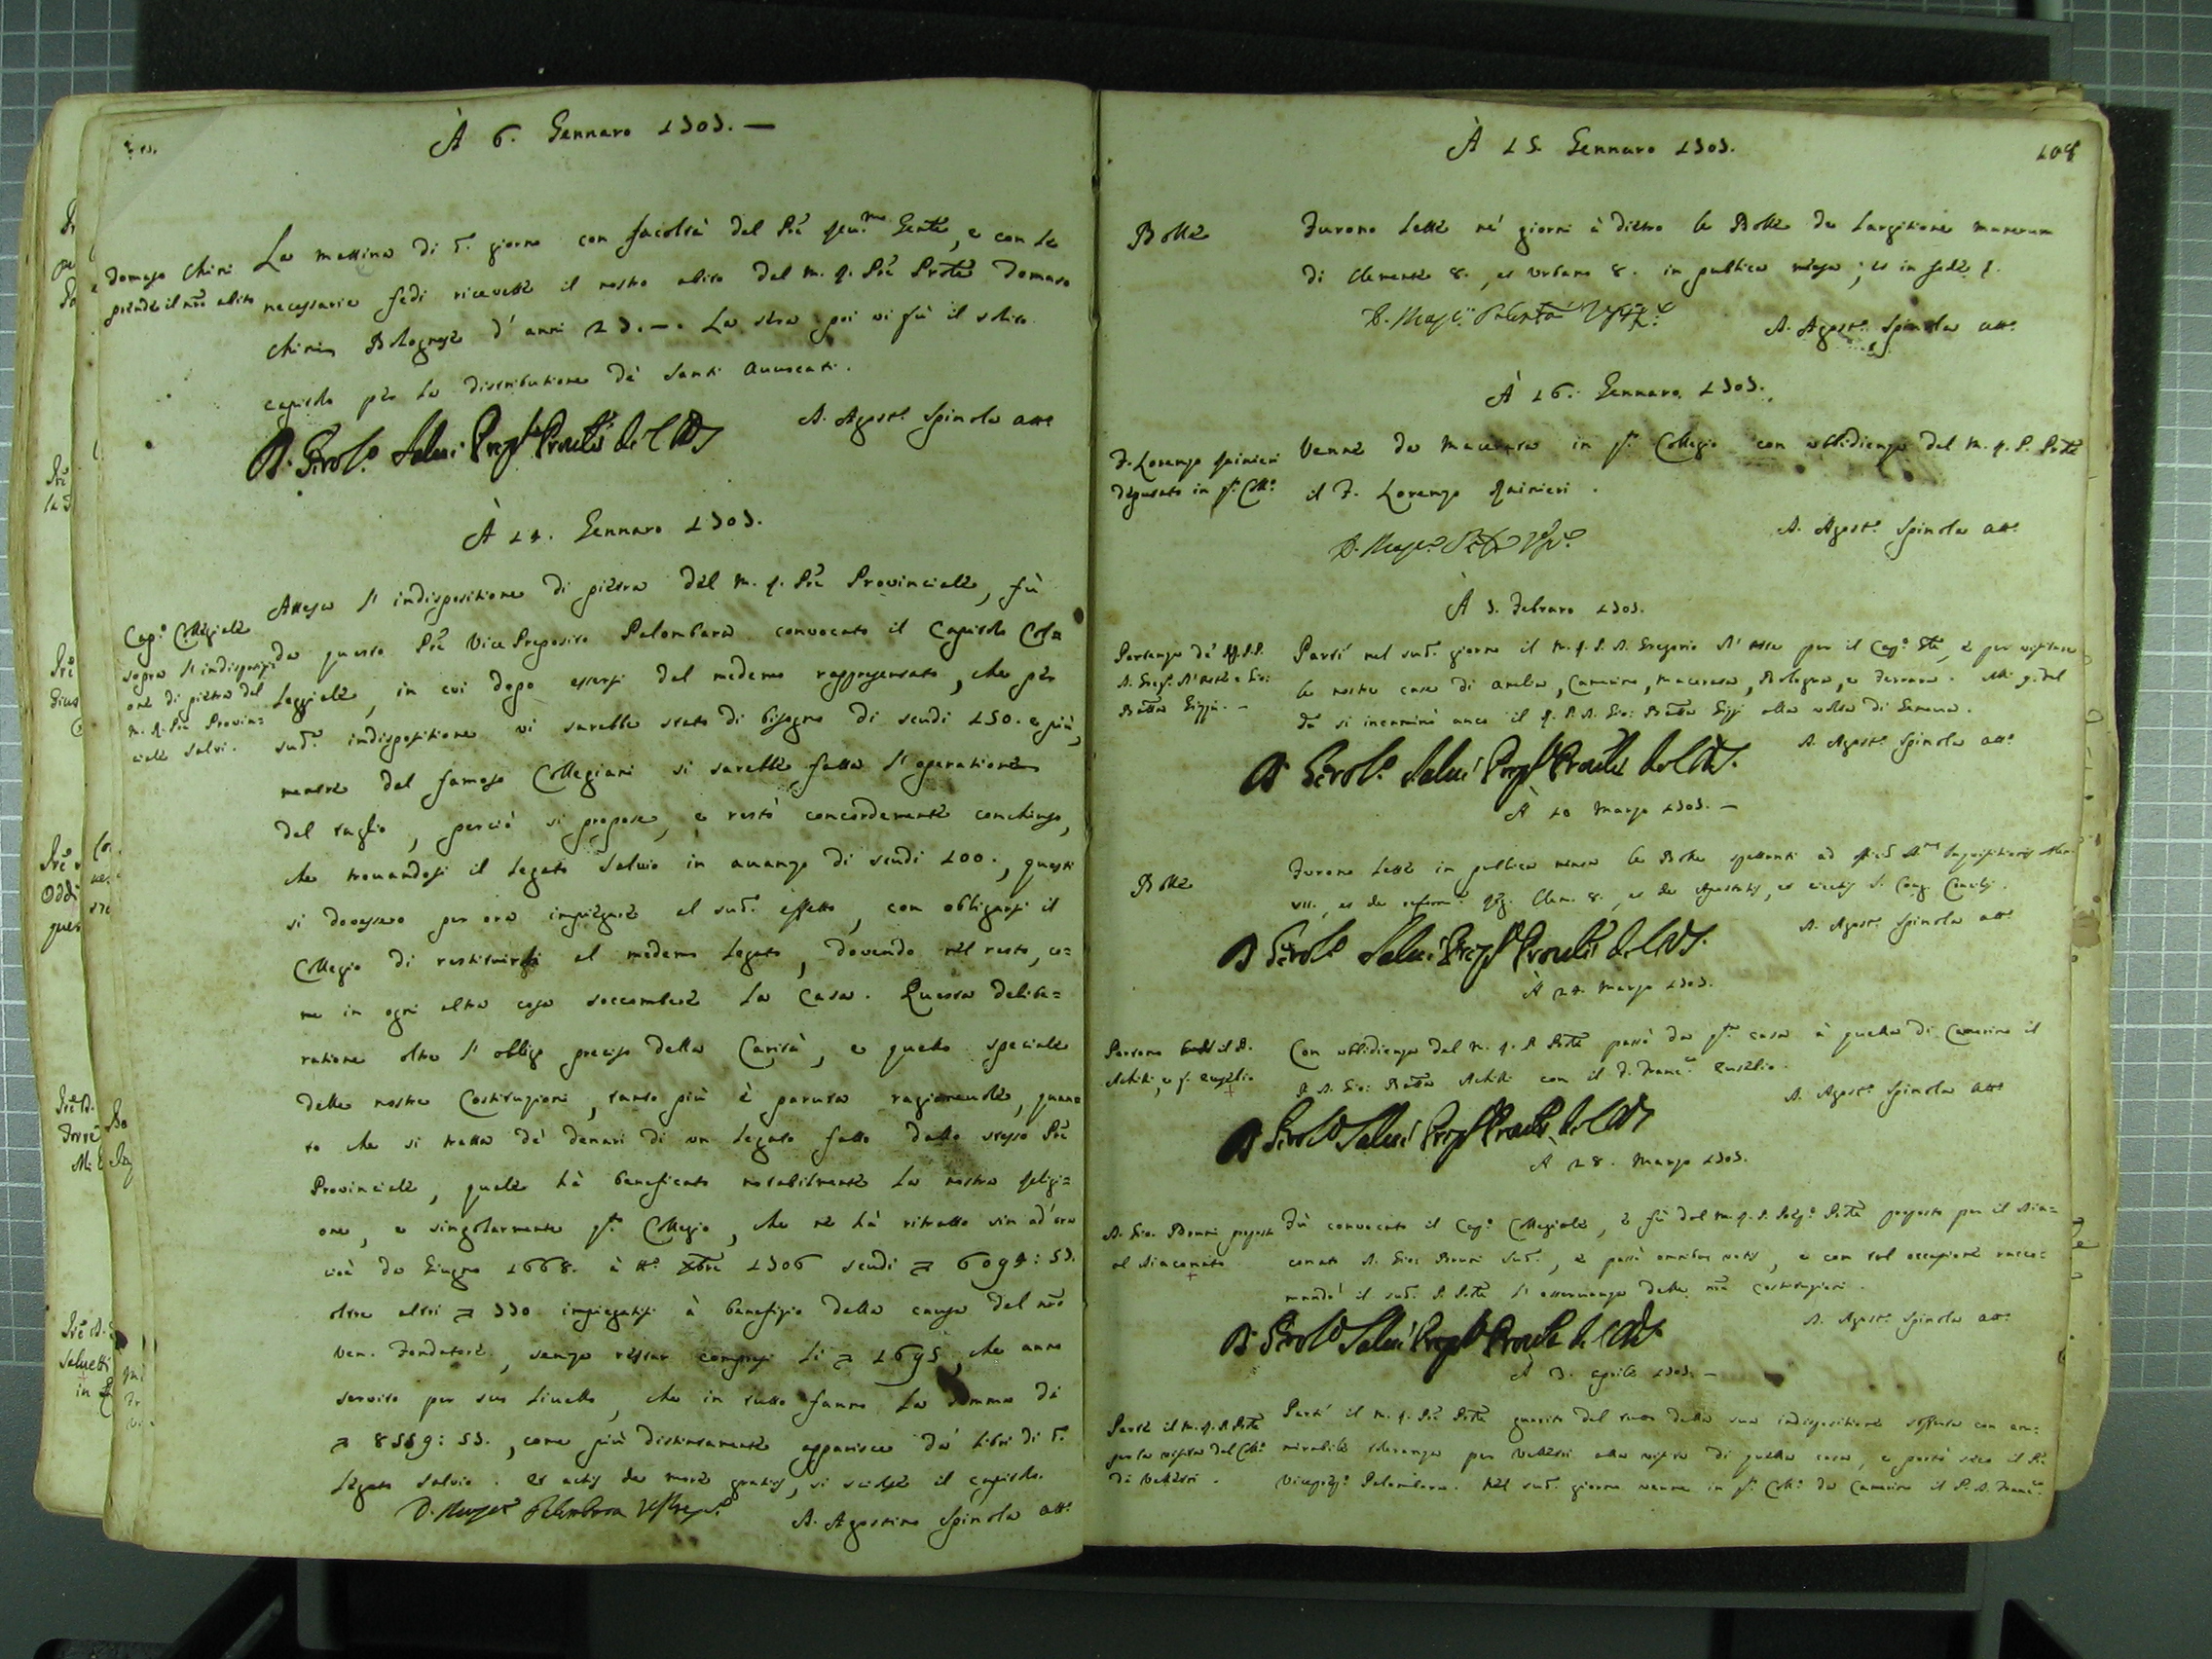 À 6. Gennaro 1707. —
Domaso Chini
prende il nrõ abito
La mattina di dº. giorno con facoltà del Prẽ Genle, e con le
necessarie fedi ricevette il nostro abito dal m. R. Prẽ Protle Domaso
Chini Bolognese d'anni 27. —. La sera poi vi fù il solito
capitolo per la distributione de' Santi Auuocati.
D. Girolº. Salvi Prepº Provinle de CRM
A. Agostº. Spinola attº
À 14. Gennaro 1707.
Capº. Collegiale
sopra l'indispositi-
one di pietra del
M. R. Prẽ Provin=
ciale Salvi.
Attesa l'indispositione di pietra del M. R. Prẽ Provinciale, fù
da questo Prẽ Vice Preposito Palombara convocato il Capitolo Col=
leggiale, in cui dopo essersi dal medemo rappresentato, che per
sudº. indispositione vi sarebbe stato di bisogno di scudi 150. e più,
mentre dal famoso Collegiani si sarebbe fatta l'operatione
del taglio, perciò si propose, e restò concordemente conchiuso,
che trouandosi il legato Salvio in auanzo di scudi 100., questi
si dovessero per ora impiegare al sudº. effetto, con obligarsi il
Collegio di restituirli al medemo legato, dovendo nel resto, co=
me in ogni altra cosa soccombere la Casa. Questa delibe=
ratione oltre l'obligo preciso della Carità, e quello speciale
delle nostre Costitutioni, tanto più è paruta ragioneuole, quan=
to che si tratta de' denari di un legato fatto dallo stesso Prẽ
Provinciale, quale hà beneficato notabilmente la nostra Religi=
one, e singolarmente qtº. Collegio, che ne hà ritratto sin ad'ora
cioè da Giugno 1668. à tº. Xbre 1706 scudi 6094: 57.
oltre altri 770 impiegatisi à benefizio della causa del nrõ
Ven. Fondatore, senza restar compresi li 1695, che anno
servito per suo liuello, che in tutto fanno la somma di
8559: 57., come più distintamente apparisce da' libri di dº.
legato Salvio. Et actis de more gratijs, si sciolse il capitolo.
A. Agostino Spinola attº.
108
À 15 Gennaro 1707.
Bolle
Furono lette ne' giorni à dietro le Bolle de largitione munerum
di Clemente 8., et Urbano 8. in publica mensa; et in fede &.
A. Agostº. Spinola attº.
À 16. Gennaro 1707.
F. Lorenzo Rainieri
deputato in qº. Collº.
Venne da Macerata in qº. Collegio con obbidienza del M. R. P. Protle
il F. Lorenzo Rainieri.
A. Agostº. Spinola attº.
À 3. Febraro 1707.
Partenza de' RR. PP.
Batta Gizzi. —
Partì nel sudº. giorno il M. R. P. D. Gregorio d'Aste per il Capº. Gnle, e per visitare
le nostre case di Amelia, Camerino, Macerata, Bologna, e Ferrara.
si incaminò anco il R. P. D. Gio: Batta Gizzi alla volta di Genova.
A. Agostº. Spinola attº
D. Girolº. Salvi Prepº Provinle de CRM.
À 10 Marzo 1707. —
Bolle
Furono lette in publica mensa le Bolle spettanti ad Inquisitionis
VII., et de reform. Clem. 8., et de Apostatis, et eiectis S. Cong. Concilij.
A. Agostº. Spinola attº
D. Girolº. Salvi Prepº Provinle de CRM.
À 24. Marzo 1707.
Partono il D.
Achilli, e F. Eusebio
Con obbidienza del M. R. P. Protle passò da qtº. casa à quella di Camerino il
P. D. Gio: Batta Achilli con il F. Francº. Eusebio.
A. Agostº. Spinola attº
D. Girolº Salvi Prepº Provinle de CRM
À 28. Marzo 1707.
D. Gio. Bruni proposto
al Diaconato
Fù convocato il Capº. Collegiale, e fù dal M. R. P. Prepº. Protle proposto per il Dia=
conato D. Gio: Bruni sudº., e passò omnibus votis, e con tal occasione racco=
mandò il sudº. P. Protle l'osseruanza delle nrẽ costitutioni.
A. Agostº. Spinola attº.
D. Girolº Salvi Prepº Provinle de CRM.
À 3. Aprile 1707. —
Parte il M. R. P. Protle
per la visita del Collº.
di Velletri.
Partì il M. R. Prẽ Protle guarito del tutto dalla sua indispositione sofferta con am=
mirabile toleranza per Velletri alla visita di quella casa, e portò seco il P.
Viceprepº. Palombara. Nel sudº. giorno venne in qº. Collº. da Camerino il P. D. Francº.